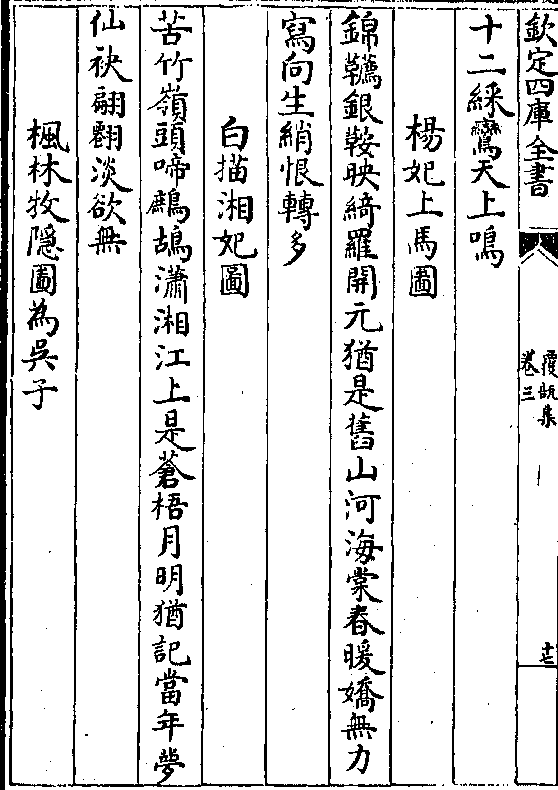 欽定四庫全書
覆瓿集
卷三
十七
十二綵鸞天上鳴
楊妃上馬圖
錦韉銀鞍映綺羅開元猶是舊山河海棠春暖嬌無力
寫向生綃恨轉多
白描湘妃圖
苦竹嶺頭啼鷓鴣瀟湘江上是蒼梧月明猶記當年夢
仙袂翩翻淡欲無
楓林牧隱圖為吳子